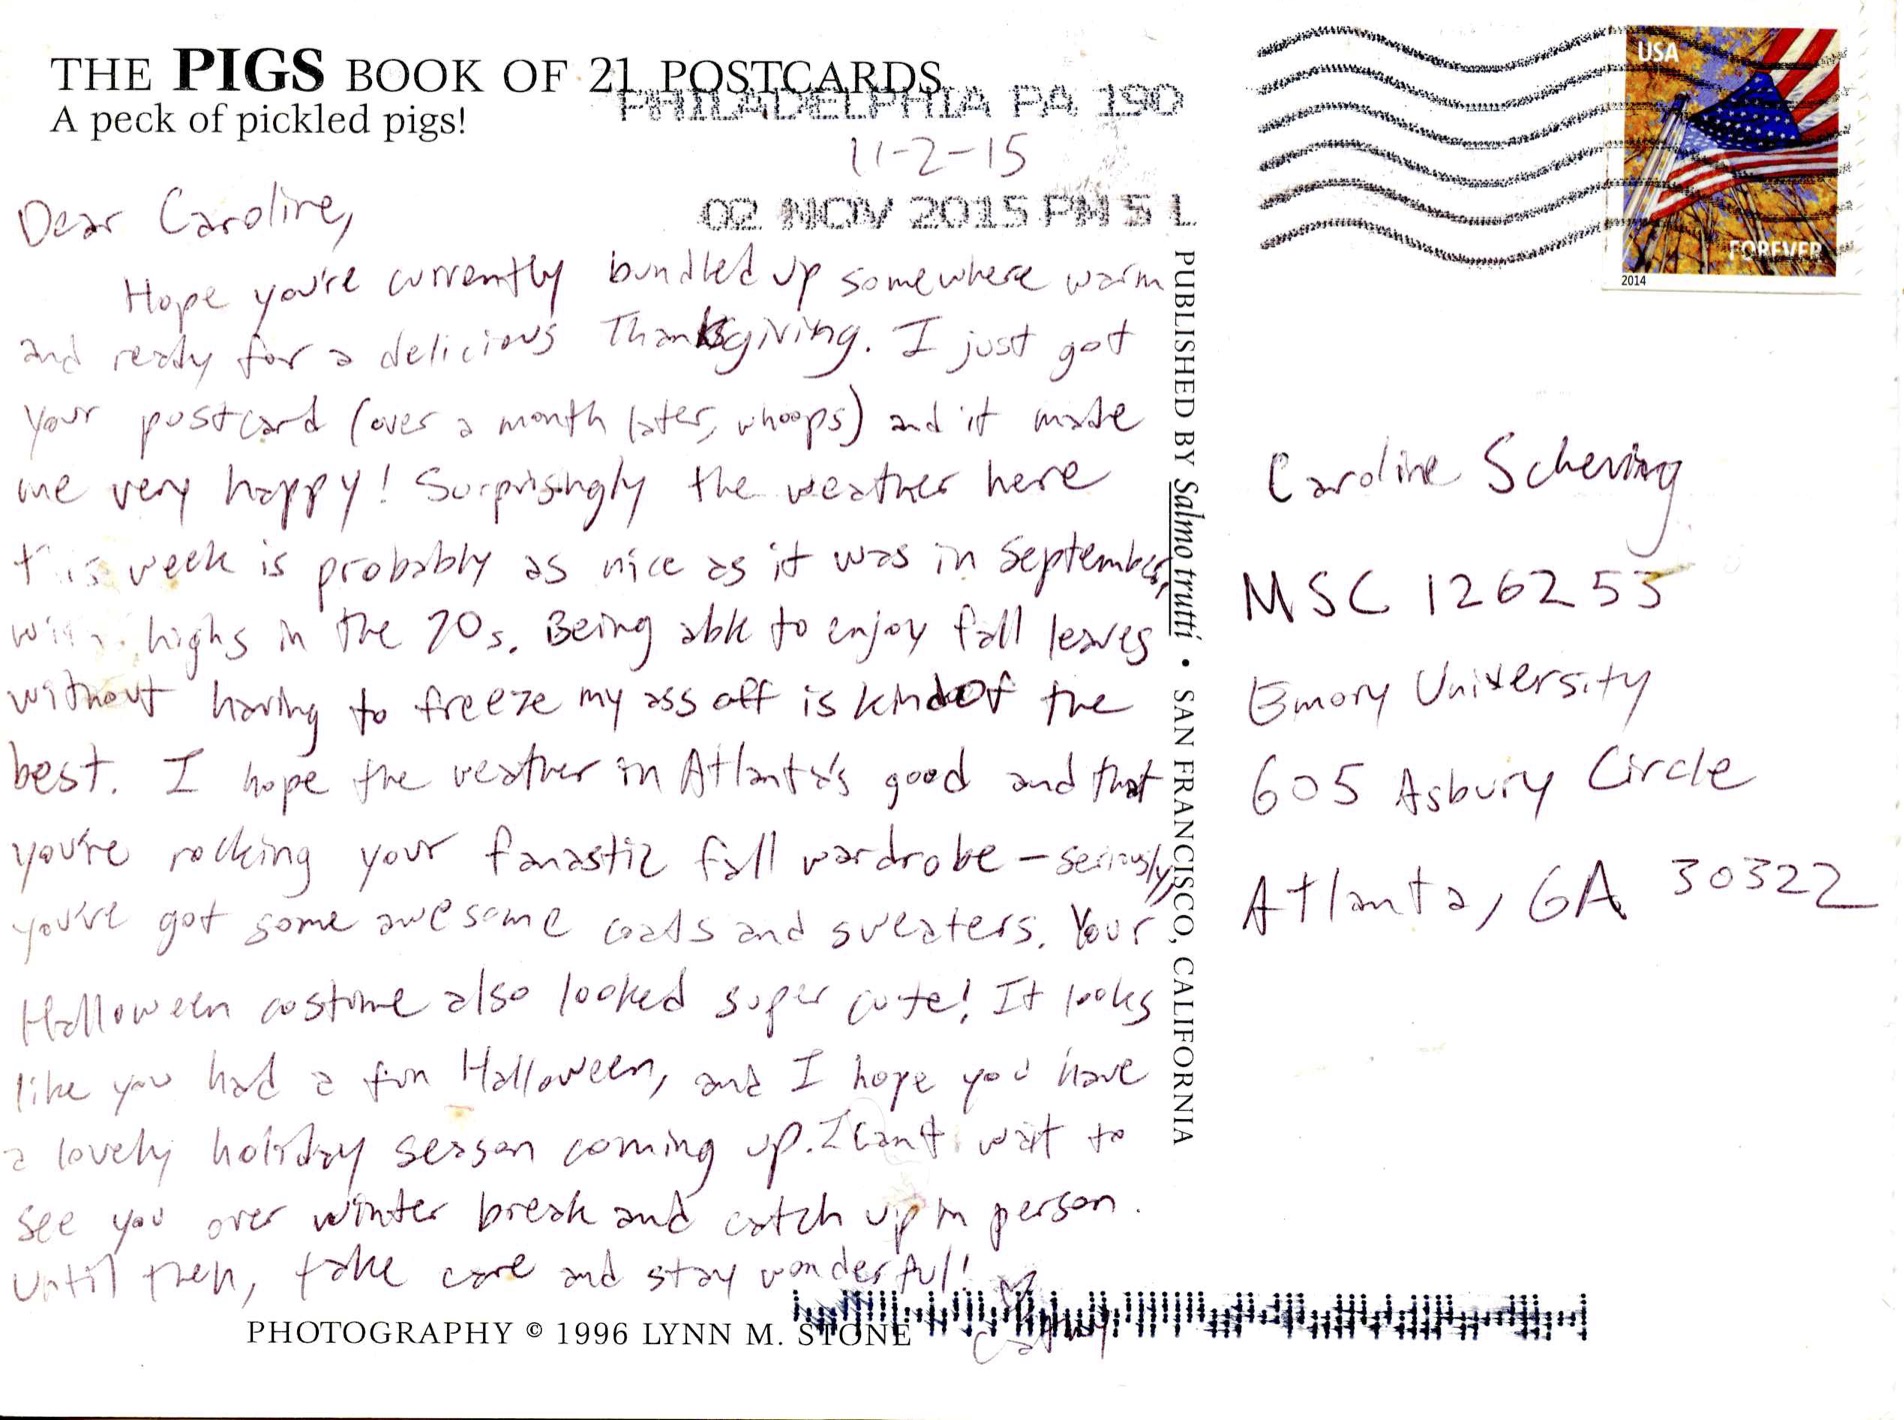 THE PIGS BOOK OF 21 POSTCARDS
A peck of pickled pigs!
PHILADELPHIA PA 190
11-2-15
02 NOV 2015 PM 5 L
USA
FOREVER
2014
Dear Caroline,
Hope you're currently bundled up somewhere warm
and ready for a delicious Thanksgiving. I just got
your postcard (over a month later, whoops) and it made
me very happy! Surprisingly the weather here
this week is probably as nice as it was in September,
with highs in the 70s. Being able to enjoy fall leaves
without having to freeze my ass off is kind of the
best. I hope the weather in Atlanta's good and that
you're rocking your fanastic fall wardrobe - seriously,
you've got some awesome coats and sweaters. Your
Halloween costume also looked super cute! It looks
like you had a fun Halloween, and I hope you have
a lovely holiday season coming up. I can't wait to
see you over winter break and catch up in person.
Until then, take care and stay wonderful!
Cathy
PHOTOGRAPHY © 1996 LYNN M. STONE
PUBLISHED BY Salmo trutti • SAN FRANCISCO, CALIFORNIA
Caroline Schering
MSC 126255
Emory University
605 Asbury Circle
Atlanta, GA 30322